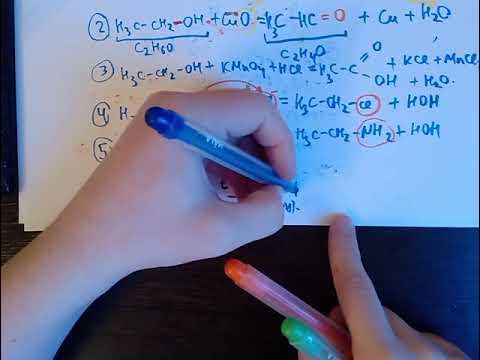 ② H₃C-CH₂-OH + CuO = H₃C-HC=O + Cu + H₂O
C₂H₆O C₂H₄O
③ H₃C-CH₂-OH + KMnO₄ + HCl = H₃C-C O OH + KCl + MnCl₂ + H₂O.
④ H- = H₃C-CH₂-Cl + HOH
⑤ H₃C-CH₂-NH₂ + HOH